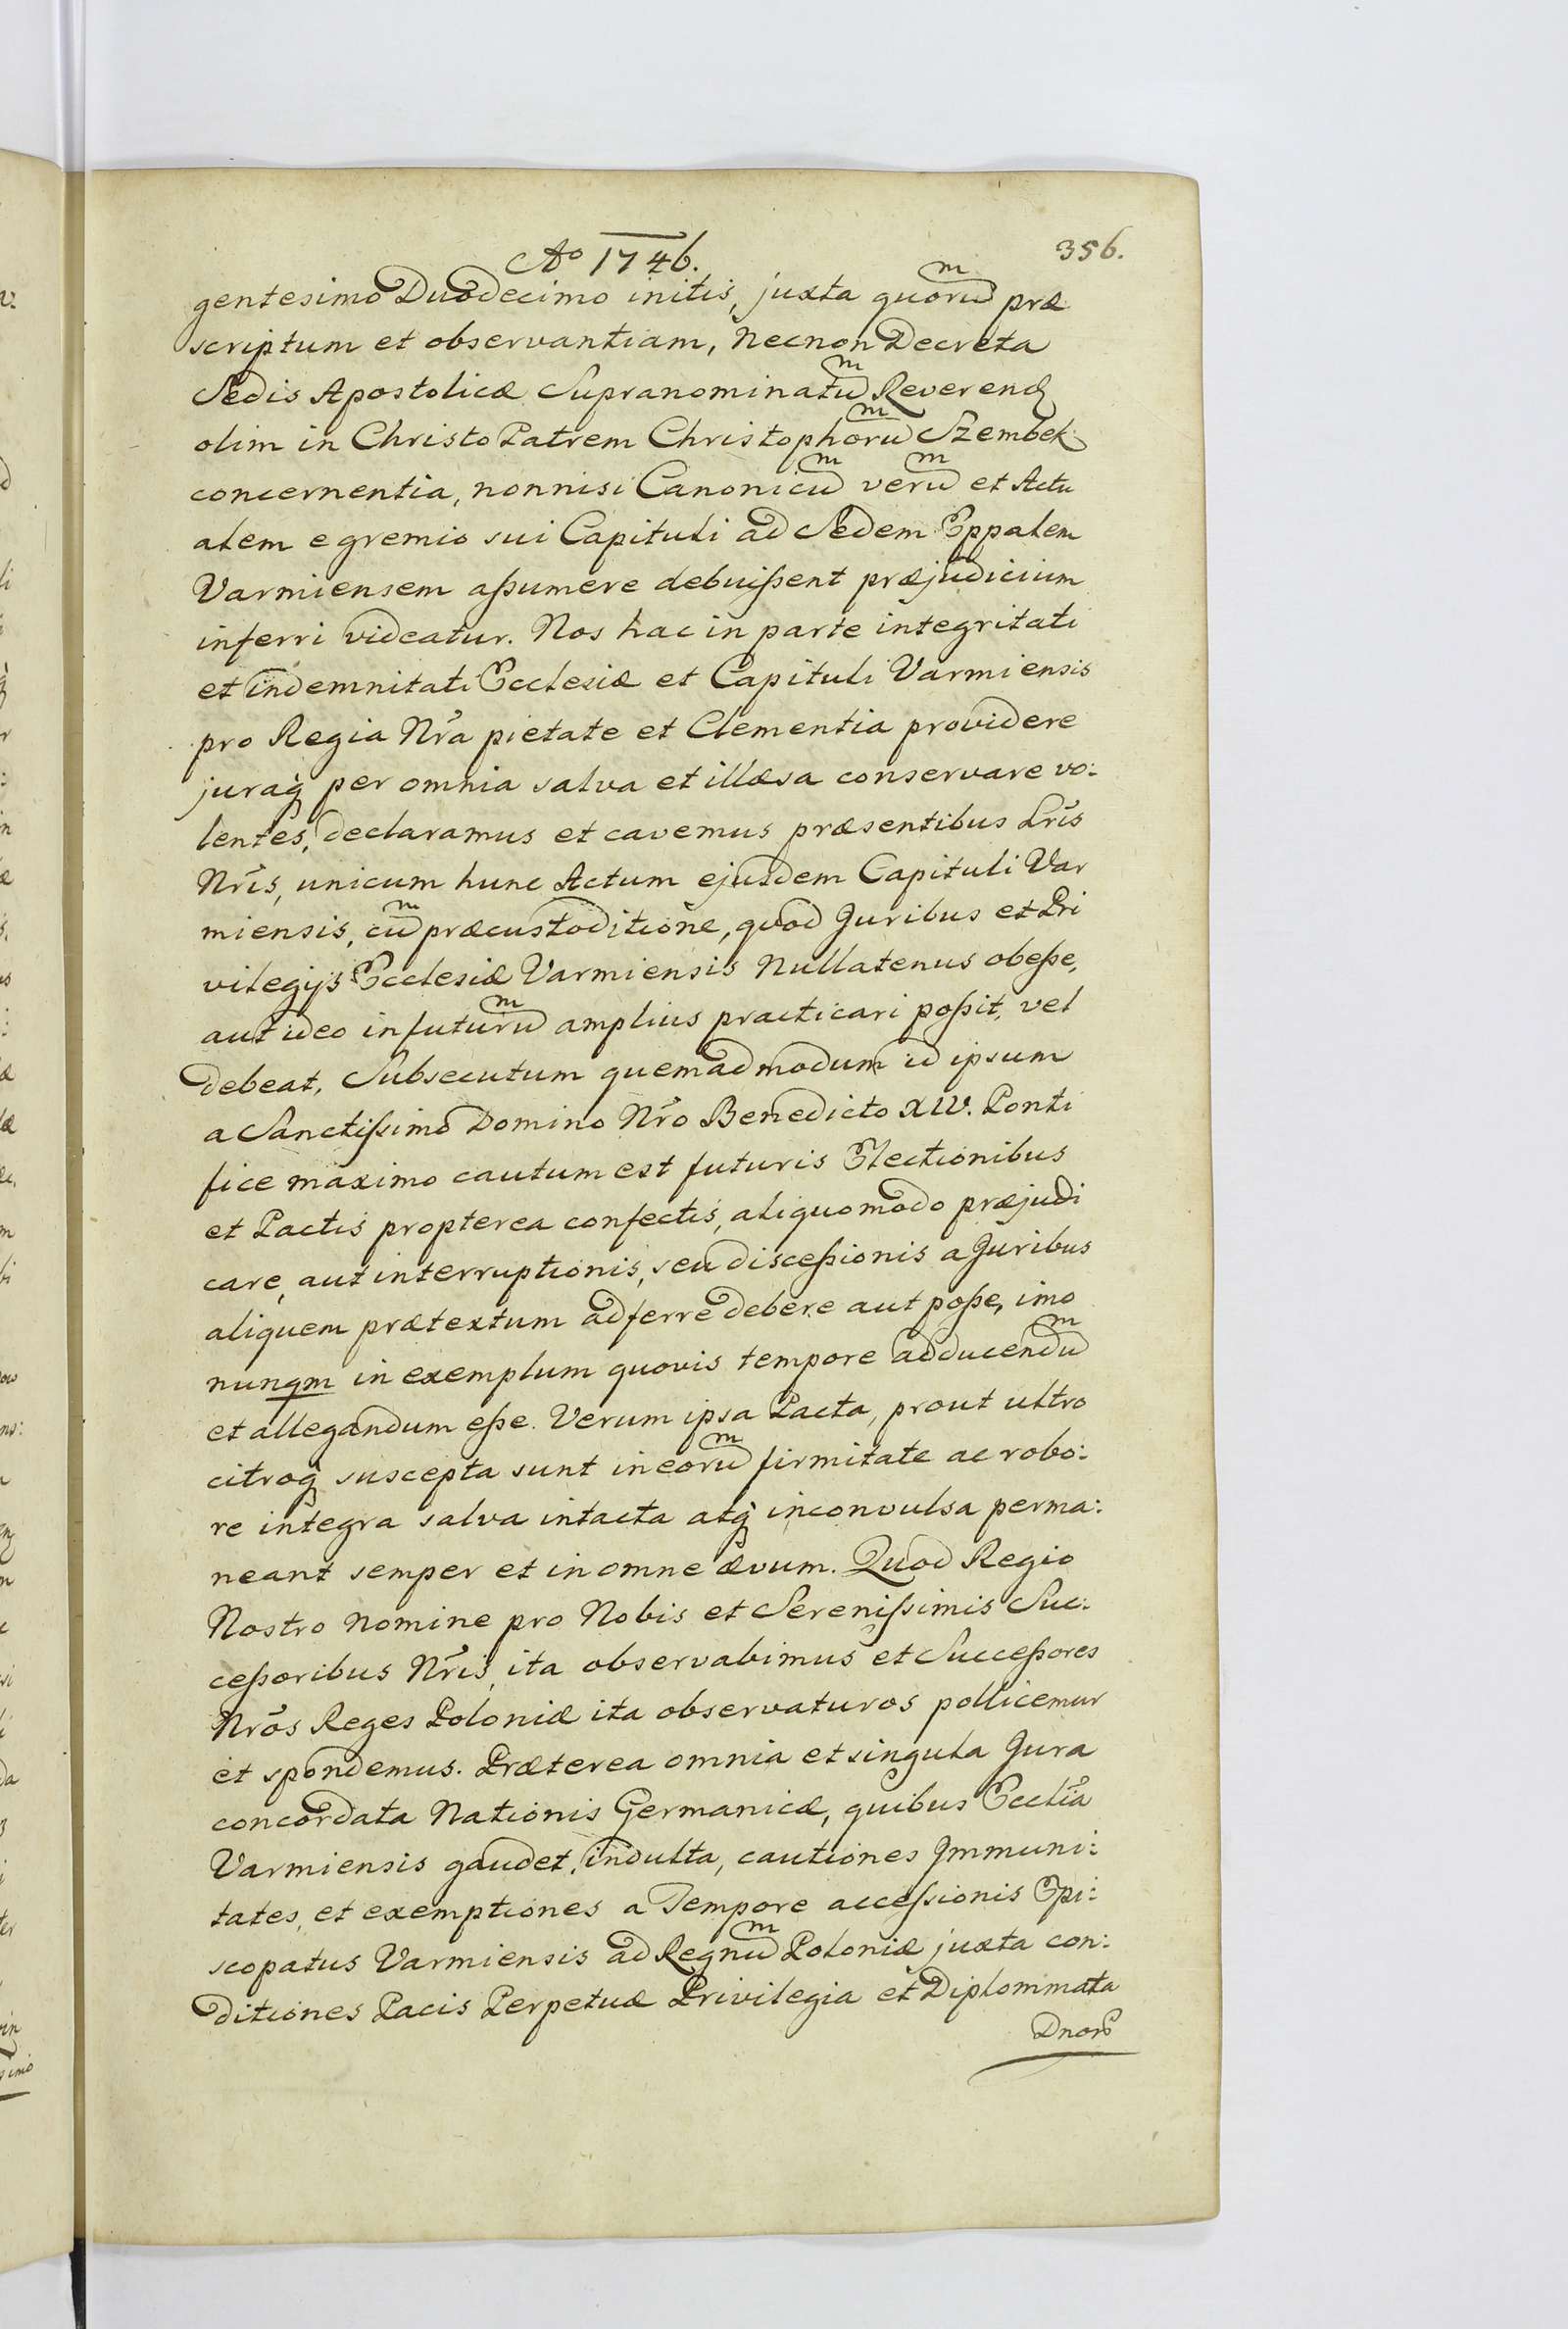 Ao 1746.
356.
gentesimo Duodecimo initis, juxta quorum præ
scriptum et observantiam, Necnon Decreta
Sedis Apostolicæ Supranominatum Reverend
olim in Christo Patrem Christophorum Szembek
concernentia, nonnisi Canonicum verum et Actu
alem e gremio sui Capituli ad Sedem Eppalem
Varmiensem aßumere debuißent præjudicium
inferri videatur. Nos hac in parte integritati
et indemnitati Ecclesiæ et Capituli Varmiensis
pro Regia Nrã pietate et Clementia providere
juraq̃ per omnia salva et illæsa conservare vo:
lentes, declaramus et cavemus præsentibus Lrĩs
Nrĩs, unicum hunc Actum ejusdem Capituli Var
miensis, cum præcustoditione, quod Juribus et Pri
vilegijs Ecclesiæ Varmiensis Nullatenus obeße,
aut ideo in futurum amplius practicari poßit, vel
debeat, Subsecutum quemadmodum id ipsum
a Sanctißimo Domino Nrõ Benedicto XIV. Ponti
fice maximo cautum est futuris Electionibus
et Pactis propterea confectis, aliquomodo præjudi
care, aut interruptionis, seu disceßionis a Juribus
aliquem prætextum adferre debere aut poße, imo
nunqm in exemplum quovis tempore adducendum
et allegandum eße. Verum ipsa Pacta, prout ultro
citroq̃ suscepta sunt in eorum firmitate ac robo:
re integra salva intacta atq̃ inconvulsa perma:
neant semper et in omne ævum. Quod Regio
Nostro Nomine pro Nobis et Serenißimis Suc:
ceßoribus Nrĩs, ita observabimus et Succeßores
Nrõs Reges Poloniæ ita observaturos pollicemur
et spondemus. Præterea omnia et singula Jura
concordata Nationis Germanicæ, quibus Ecclĩa
Varmiensis gaudet, indulta, cautiones Immuni:
tates, et exemptiones a Tempore acceßionis Epi:
scopatus Varmiensis ad Regnum Poloniæ juxta con:
ditiones Pacis Perpetuæ Privilegia et Diplommata
Dnorũ